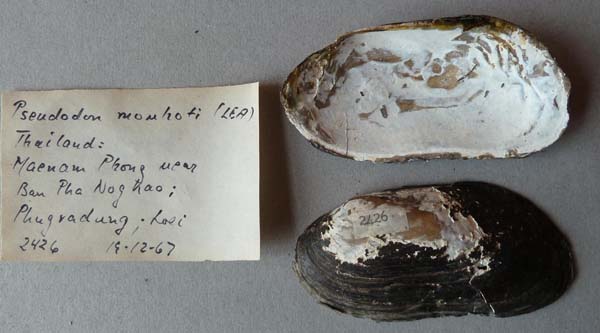 Pseudodon mouhoti (LEA)
Thailand:
Maenam Phong near
Ban Pha Nog Khao;
Phugradung, Loei
2426 19-12-67
2426